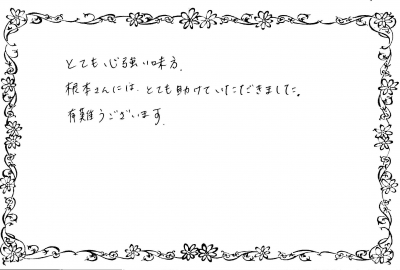 とても心強い味方。
根本さんには、とても助けていただきました。
有難うございます。